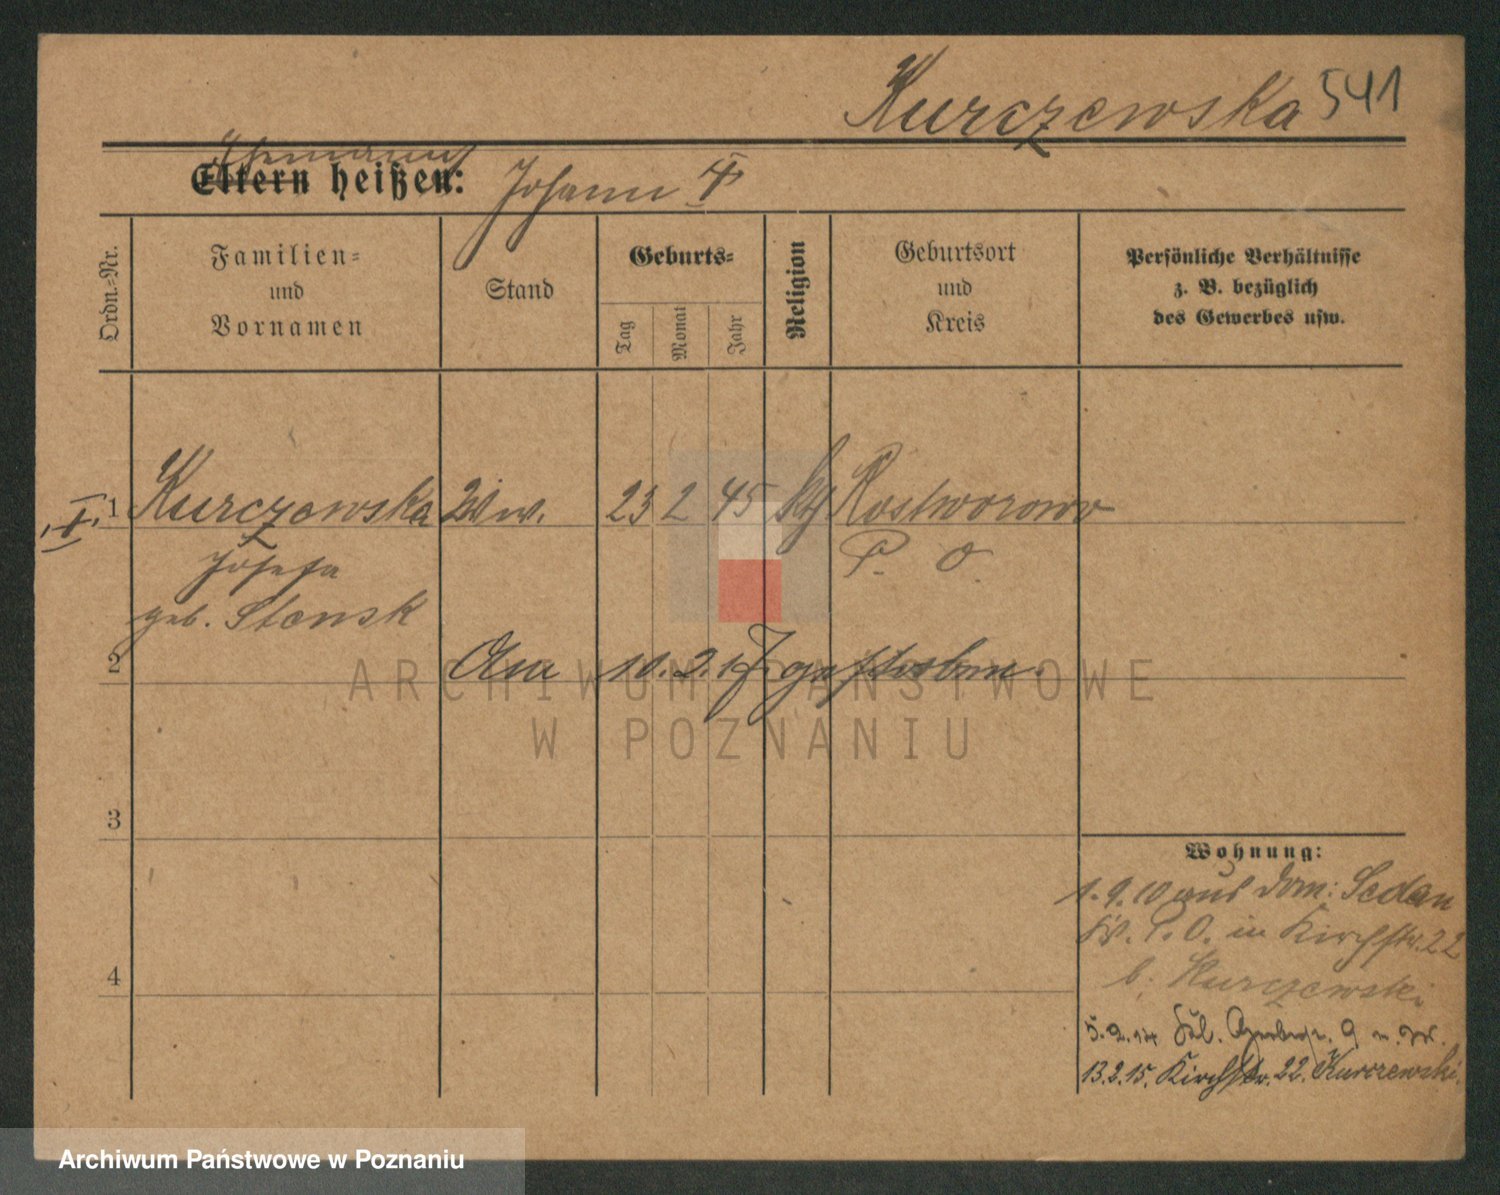 Kurczewska 541
Ehemann
Eltern heißen: Johann
Ordn.-Nr.
Familien- und Vornamen
Stand
Geburts-
Tag
Monat
Jahr
Religion
Geburtsort und Kreis
Persönliche Verhältnisse z. B. bezüglich des Gewerbes usw.
1 Kurczewska Ww. 23 2 45 Rostworowo
Josefa P. O.
geb. Stensk
2 Am 10. 2. 17. gestorben.
ARCHIWUM PAŃSTWOWE
W POZNANIU
3
Wohnung:
1.9.10 aus Dom: Sedan
Kr. P. O. in Kirchstr. 22
b. Kurczewski
4
13.2.15. Kirchstr. 22. Kurczewski.
Archiwum Państwowe w Poznaniu